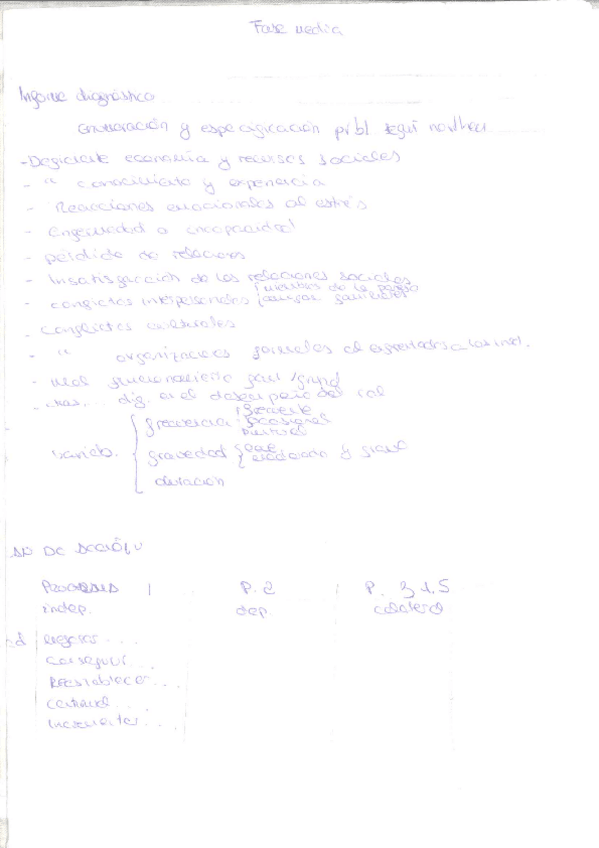 Fase media
Informe diagnóstico
enumeración y especificación según
- Deficiente economía y recursos sociales
- " conocimiento y experiencia
- Reacciones emocionales al estrés
- enfermedad o incapacidad
- pérdida de relaciones
- Insatisfacción de las relaciones sociales
- conflictos interpersonales { miembros de la pareja
amigos familiares
- Conflictos culturales
- " organizaciones formales
- mal funcionamiento fam/grupal
- dif. en el desempeño del rol
variab. { frecuencia { frecuente
ocasional
puntual
gravedad { leve
moderado y grave
duración
DE ACCIÓN
Procesos 1 P. 2 P. 3 4.5
indep. dep colateral
mejorar...
Conseguir...
Restablecer...
Cambiar...
Incrementar...